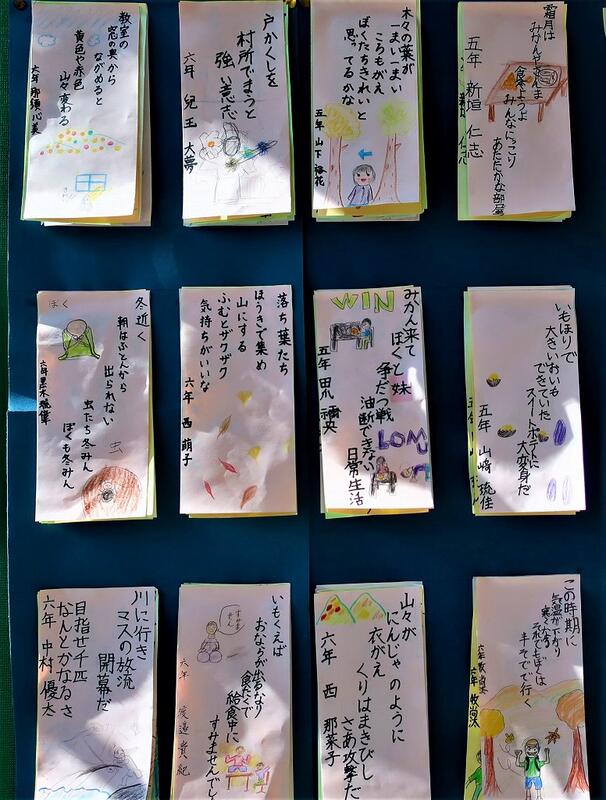 霜月は
みかんやさんま
食べようよ
みんなにっこり
あたたかな部屋
五年 新垣 仁志
木々の葉が
一まい一まい
ころもがえ
ぼくたちきれいと
思ってるかな
五年 山下
戸かくしを
村所でまうと
強い意志
六年 児玉 大夢
教室の
窓の奥から
ながめると
黄色や赤色
山々変わる
六年 那須心美
いもほりで
大きいおいも
できていた
スイートポテトに
大変身だ
五年 山崎 琉佳
WIN
みかん来て
ぼくと妹
争だつ戦
油断できない
日常生活
五年 田爪
落ち葉たち
ほうきで集め
山にする
ふむとザクザク
気持ちがいいな
六年 西 萌子
冬近く
朝はふとんから
出られない
虫たち冬みん
ぼくも冬みん
六年 黒木
ぼく
虫
この時期に
気温が下がり
寒くなる
それでもぼくは
半そでで行く
六年 牧 尚汰
山々が
にんじゃのように
衣がえ
くりはまきびし
さあ攻撃だ
六年 西 那菜子
いもくえば
おならが出るなり
食たくで
給食中に
すみませんでし
六年 渡邉 貴紀
川に行き
マスの放流
開幕だ
目指せ千匹
なんとかなるさ
六年 中村 優太